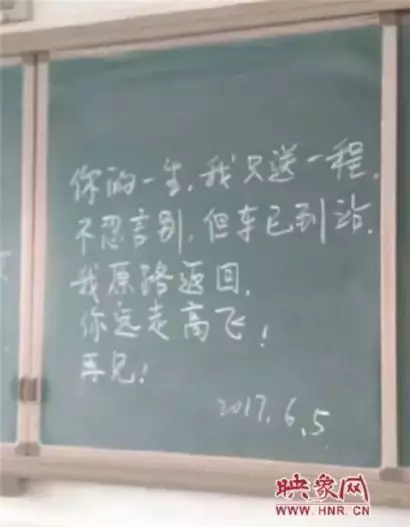 你的一生，我只送一程，
不忍言别，但车已到站，
我原路返回，
你远走高飞！
再见！
2017.6.5
映象网
WWW.HNR.CN